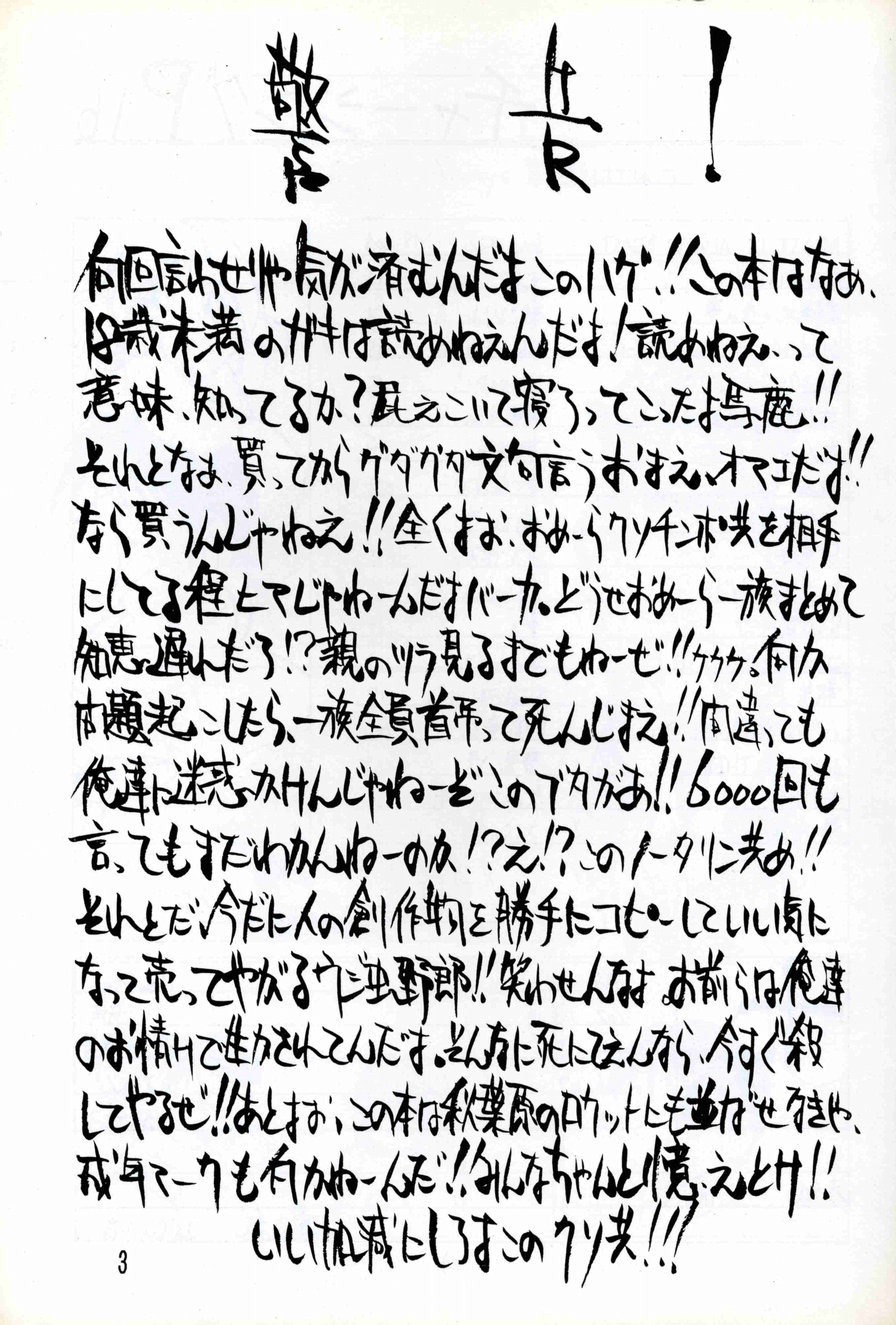 警告!
何回言わせりゃ気が済むんだよこのハゲ!!この本はなぁ、
18歳未満のガキは読めねえんだよ!読めねえ、って
意味、知ってるか?屁えこいて寝ろってこったよ馬鹿!!
それとなぁ、買ってからグダグダ文句言うおまえ、オマエだよ!!
なら買うんじゃねえ!!全くよお、おめーらクソチンポ共を相手
にしてる程ヒマじゃねーんだよバーカ。どうせおめーら一族まとめて
知恵遅れだろ!?親のツラ見るまでもねーぜ!!ゥゥゥ。何か
問題起こしたら、一族全員首吊って死んじまえ!!間違っても
俺達に迷惑かけんじゃねーぞこのブタがあ!!6000回も
言ってもまだわかんねーのか!?え!?このノータリン共め!!
それとだ、今だに人の創作物を勝手にコピーしていい気に
なって売ってやがるウジ虫野郎!!笑わせんなよ。お前らは俺達
のお情けで生かされてんだよ。そんなに死にてえんなら、今すぐ殺
してやるぜ!!あとよお、この本は秋葉原のロケットにも並ばせなきゃ、
成年マークも付かねーんだ!!みんなちゃんと憶えとけ!!
いい加減にしろよこのクソ共!!!
3